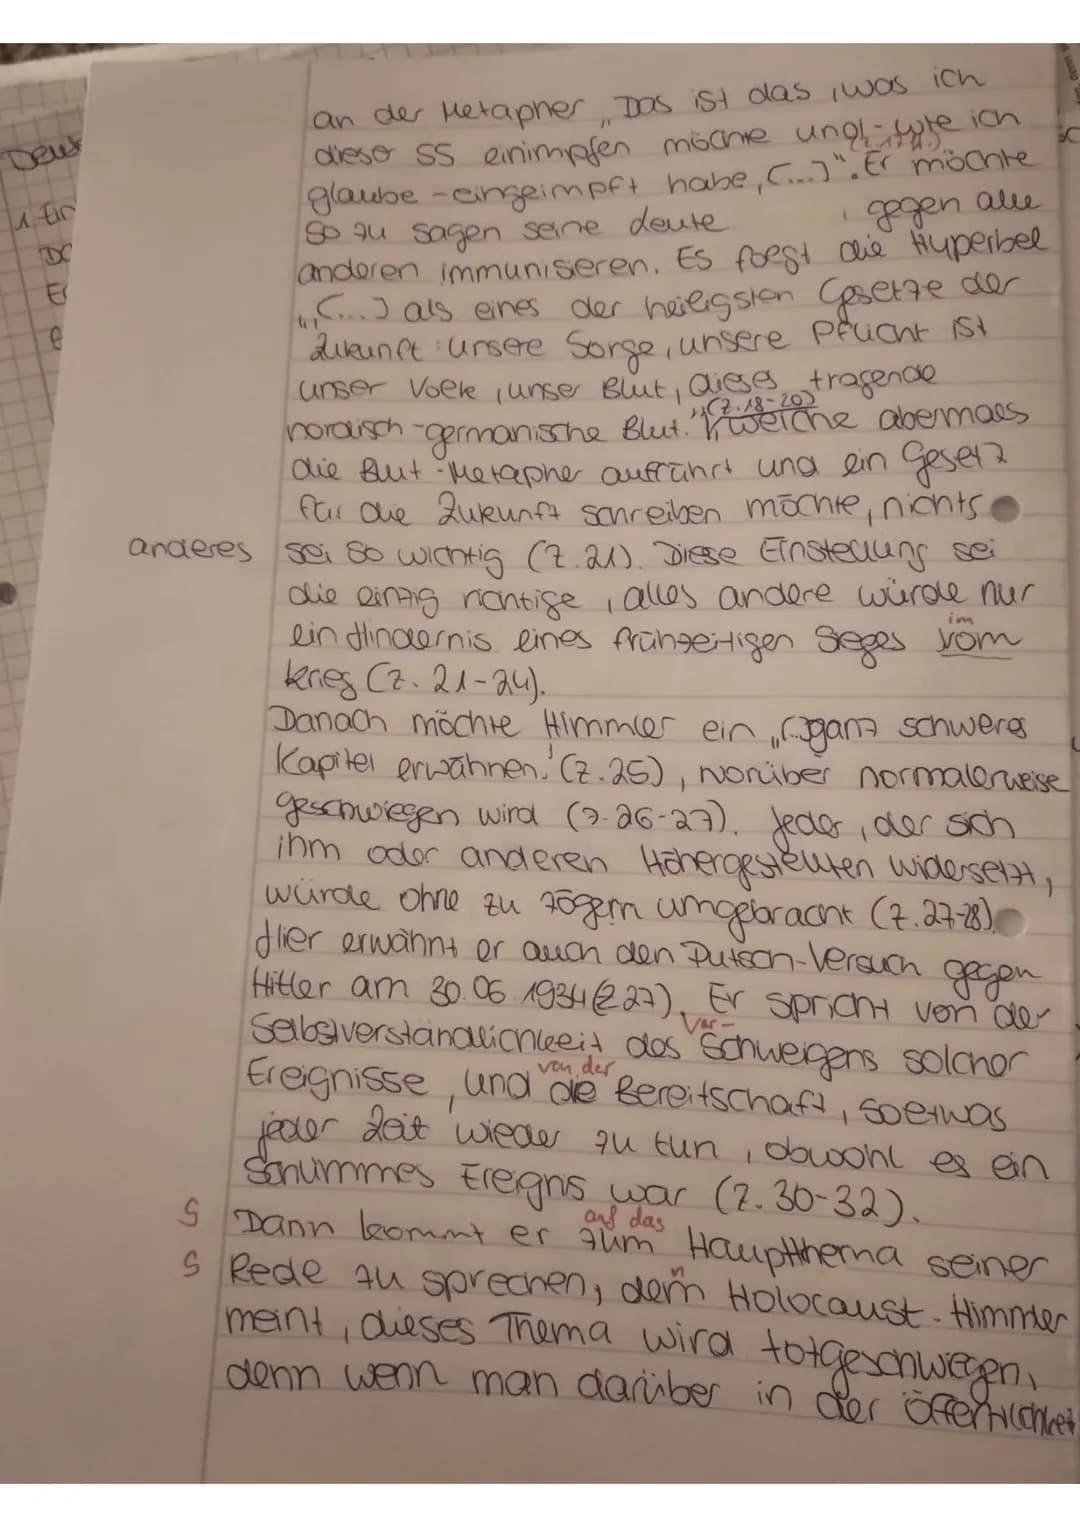 an der Metapher „Das ist das, was ich
dieser SS einimpfen möchte und - wie ich
glaube - eingeimpft habe, (...)". Er möchte
so zu sagen seine Leute, gegen alle
anderen immunisieren. Es folgt die Hyperbel
„(...) als eines der heiligsten Gesetze der
Zukunft: unsere Sorge, unsere Pflicht ist
unser Volk, unser Blut, dieses tragende
(Z. 18-20)
nordisch-germanische Blut.", welche abermals
die Blut-Metapher aufführt und ein Gesetz
für die Zukunft schreiben möchte, nichts
anderes sei so wichtig (Z. 21). Diese Einstellung sei
die einzig richtige, alles andere würde nur
im
ein Hindernis eines frühzeitigen Sieges vom
Krieg (Z. 21-24).
Danach möchte Himmler ein „(...)ganz schweres
Kapitel erwähnen." (Z. 25), worüber normalerweise
geschwiegen wird (Z. 26-27). Jeder, der sich
ihm oder anderen Höhergestellten widersetzt,
würde ohne zu zögern umgebracht (Z. 27-28).
Hier erwähnt er auch den Putsch-Versuch gegen
Hitler am 30.06.1934 (Z. 27). Er spricht von der
Ver-
Selbstverständlichkeit des Schweigens solcher
von der
Ereignisse, und die Bereitschaft, soetwas
jeder Zeit wieder zu tun, obwohl es ein
schlimmes Ereignis war (Z. 30-32).
auf das
S Dann kommt er zum Hauptthema seiner
n
S Rede zu sprechen, dem Holocaust. Himmler
meint, dieses Thema wird totgeschwiegen,
denn wenn man darüber in der Öffentlichkeit
Deut
1. Ein